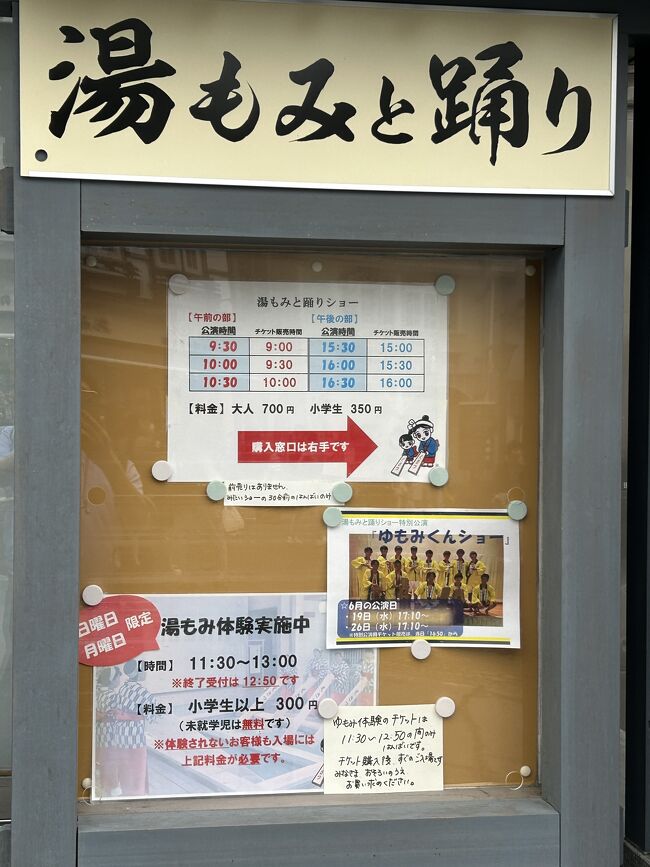 湯もみと踊り
湯もみと踊りショー
【午前の部】 【午後の部】
公演時間 チケット販売時間 公演時間 チケット販売時間
9:30 9:00 15:30 15:00
10:00 9:30 16:00 15:30
10:30 10:00 16:30 16:00
【料金】 大人 700円 小学生 350円
購入窓口は右手です
前売りはありません
30分前のはんばいのみ
湯もみと踊りショー特別公演
「ゆもみくんショー」
☆6月の公演日
・19日(水)17:10～
・26日(水)17:10～
日曜日
月曜日
限定
湯もみ体験実施中
【時間】 11:30～13:00
※終了受付は12:50です
【料金】 小学生以上 300円
(未就学児は無料です)
※体験されないお客様も入場には
上記料金が必要です。
ゆもみ体験のチケットは
11:30～12:50の間のみ
はんばいです。
チケット購入後、すぐのご入場です
みなさま おそろいのうえ
お買い求めください。